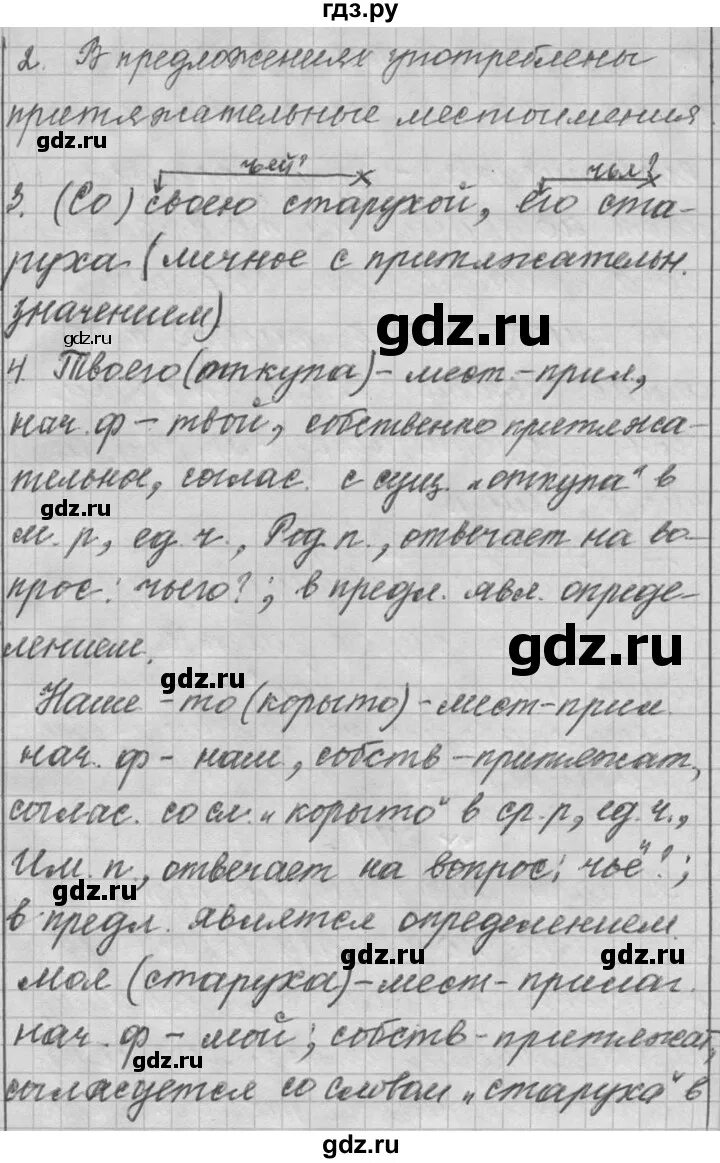 гдз.ру
2. В предложениях употреблены
притяжательные местоимения.
gdz.ru
чьей? чья?
3. (Со) своею старухой, его ста-
руха (личное с притяжательн.
значением)
gdz.ru
gdz.ru
4. Твоего (откупа) - мест-прил,
нач. ф - твой, собственно притяжа-
тельное, соглас. с сущ. „откупа" в
gdz.ru
м. р, ед. ч., Род. п., отвечает на во-
прос: чьего?; в предл. явл. опреде-
лением.
gdz.ru
gdz.ru
Наше -то (корыто) - мест-прил.
нач. ф - наш, собств - притяжат,
соглас. со сл. „корыто" в ср. р, ед. ч.,
Им. п., отвечает на вопрос: чьё?;
gdz.ru
gdz.ru
в предл. является определением.
gdz.ru
gdz.ru
моя (старуха) - мест - прилаг.
нач. ф - мой; собств - притяжат,
gdz.ru
gdz.ru
согласуется со словом „старуха" в
gdz.ru